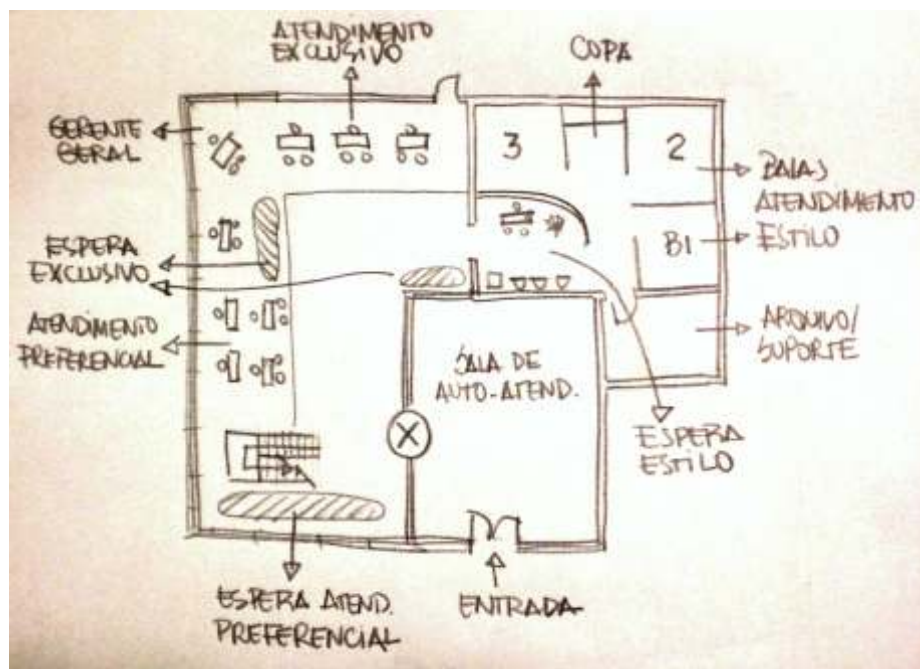 ATENDIMENTO
EXCLUSIVO
COPA
GERENTE
GERAL
3
2
BAIAS
ATENDIMENTO
ESTILO
B1
ESPERA
EXCLUSIVO
ATENDIMENTO
PREFERENCIAL
ARQUIVO/
SUPORTE
SALA DE
AUTO-ATEND.
X
ESPERA
ESTILO
ESPERA ATEND.
PREFERENCIAL
ENTRADA